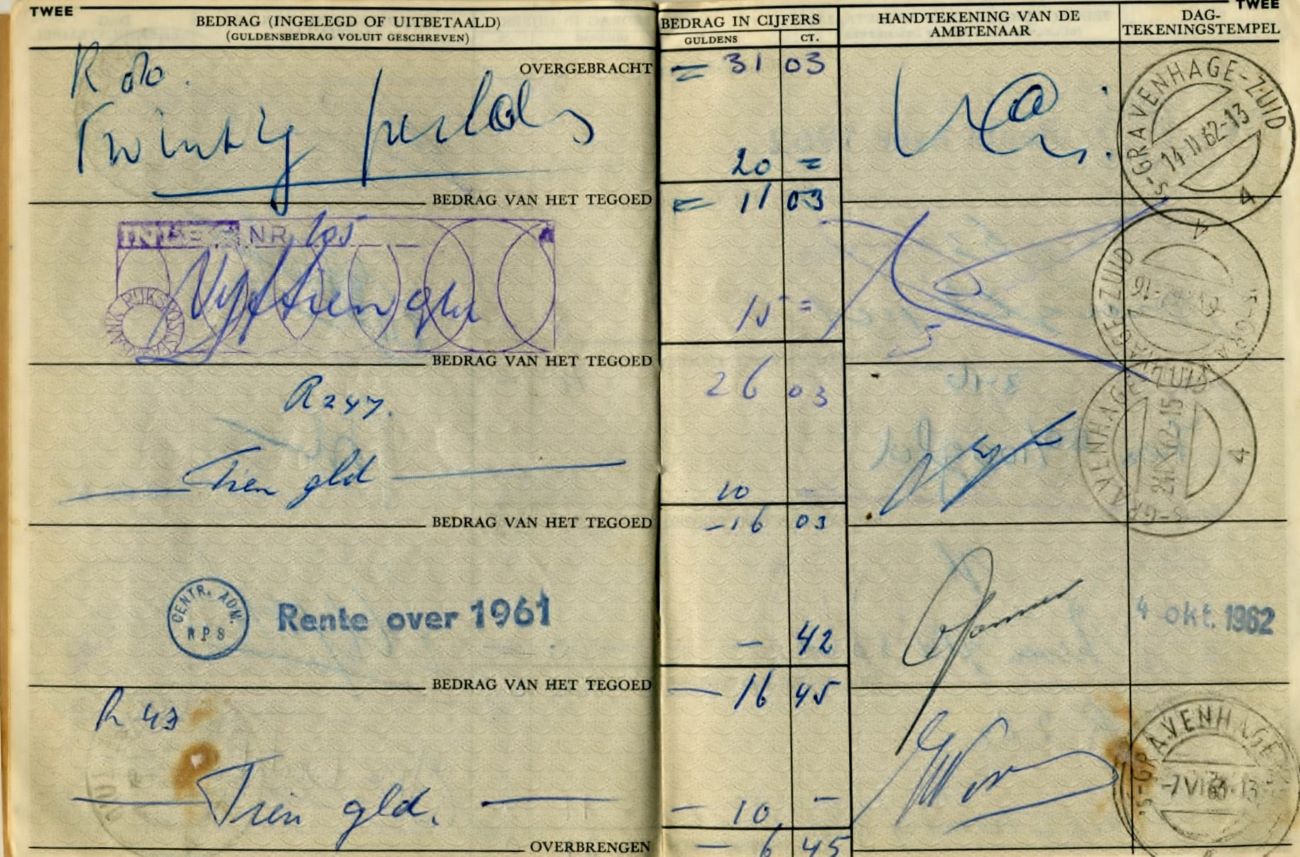 TWEE TWEE
BEDRAG (INGELEGD OF UITBETAALD) BEDRAG IN CIJFERS HANDTEKENING VAN DE AMBTENAAR DAG-TEKENINGSTEMPEL
(GULDENSBEDRAG VOLUIT GESCHREVEN) GULDENS CT.
OVERGEBRACHT = 31 03
'S-GRAVENHAGE-ZUID 14 II 62-13 4
Twintig guldens 20 =
BEDRAG VAN HET TEGOED = 11 03
INLEG NR. 105
RIJKSPOSTSPAARBANK
Vyftien gld 15 =
'S-GRAVENHAGE-ZUID 4
BEDRAG VAN HET TEGOED 26 03
R 247.
Tien gld 10 -
'S-GRAVENHAGE-ZUID 62-15 4
BEDRAG VAN HET TEGOED - 16 03
CENTR. ADM. RPS Rente over 1961 - 42 4 okt. 1962
BEDRAG VAN HET TEGOED - 16 45
R 43
Tien gld. - 10, -
'S-GRAVENHAGE
OVERBRENGEN - 6 45